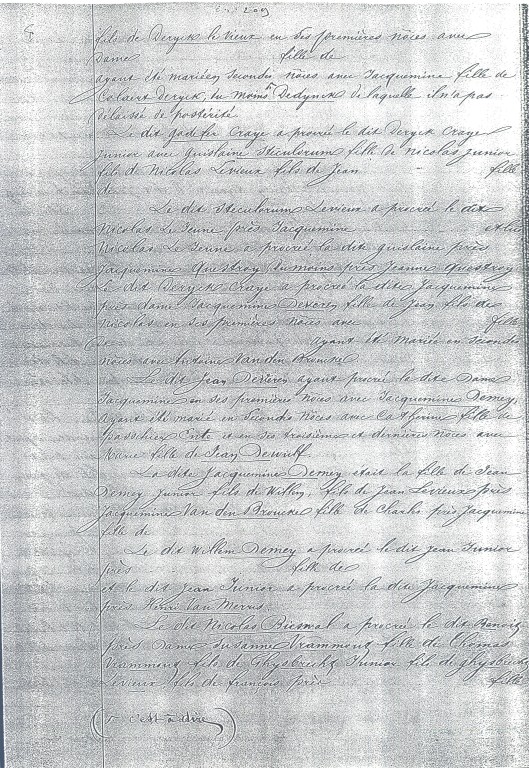 fils de Deryck le vieux en ses premières nôces avec
Dame fille de
ayant été mariée en secondes nôces avec Jacquemine fille de
Colaert Deryck, du moins Dedynck de laquelle il n'a pas
délaissé de postérité
Le dit Godefer Craye a procréé le dit Deryck Craye
junior avec Guislaine Steculorum fille de Nicolas junior
fils de Nicolas Levieux fils de Jean fille
de
Le dit Steculorum Levieux a procréé le dit
Nicolas Le Jeune près Jacquemine et le
Nicolas Le Jeune a procréé la dite Guislaine près
Jacquemine Questroy du moins près Jeanne Questroy
Le dit Deryck Craye a procréé la dite Jacquemine
près dame Jacquemine Deveren fille de Jean fils de
Nicolas en ses premières nôces avec fille
de ayant été mariée en secondes
nôces avec Antoine Van den Brouncke
Le dit Jean Deveren ayant procréé la dite Dame
Jacquemine en ses premières nôces avec Jacquemine Demey,
ayant été marié en secondes nôces avec Catherine fille de
passchier Ente et en ses troisième et dernières nôces avec
Marie fille de Jean Dewulf.
La dite Jacquemine Demey était la fille de Jean
Demey Junior fils de Willem, fils de Jean Levieux près
Jacquemine Van den Broucke fille de Charles près Jacquemine
fille de
Le dit Willem Demey a procréé le dit Jean Junior
près fille de
et le dit Jean Junior a procréé la dite Jacquemine
près Henri Van Merris.
Le dit Nicolas Bieswal a procréé le dit Benoit
près Dame Susanne Vrammout fille de Thomas
Vrammout fils de Ghysbrecht Junior fils de Ghysbrecht
Levieux fils de francois près fille
(+ c'est à dire)